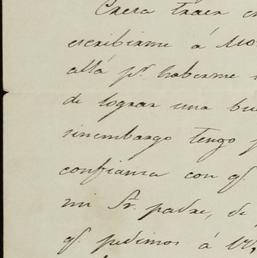 Creta traer
escribirme á Mo
allá pr. haberme
de lograr una bu
sinembargo tengo
confianza con qe.
mi Sr. padre, de
qe. pedimos á